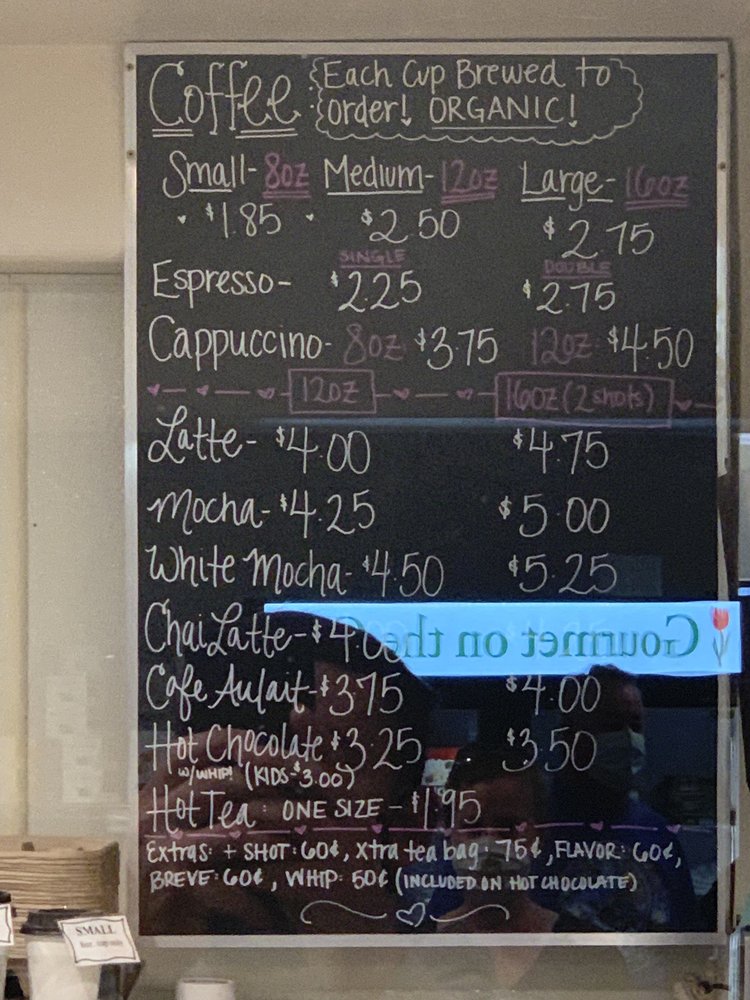 Coffee Each Cup Brewed to
order! ORGANIC!
Small- 8oz Medium- 12oz Large- 16oz
$1.85 $2.50 $2.75
SINGLE DOUBLE
Espresso- $2.25 $2.75
Cappuccino- 8oz $3.75 12oz $4.50
12oz 16oz (2 shots)
Latte- $4.00 $4.75
Mocha- $4.25 $5.00
White Mocha- $4.50 $5.25
Chai Latte- $4.00
Gourmet on the
Cafe Aulait- $3.75 $4.00
Hot Chocolate $3.25 $3.50
w/WHIP! (KIDS-$3.00)
Hot Tea: ONE SIZE - $1.95
Extras: + SHOT: 60¢, Xtra tea bag: 75¢, FLAVOR: 60¢,
BREVE: 60¢, WHIP: 50¢ (INCLUDED ON HOT CHOCOLATE)
SMALL